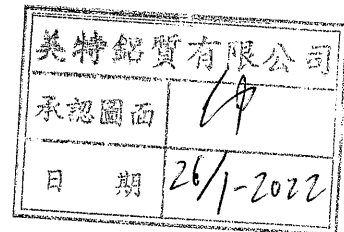 美特鋁質有限公司
承認圖面
日期 26/1-2022